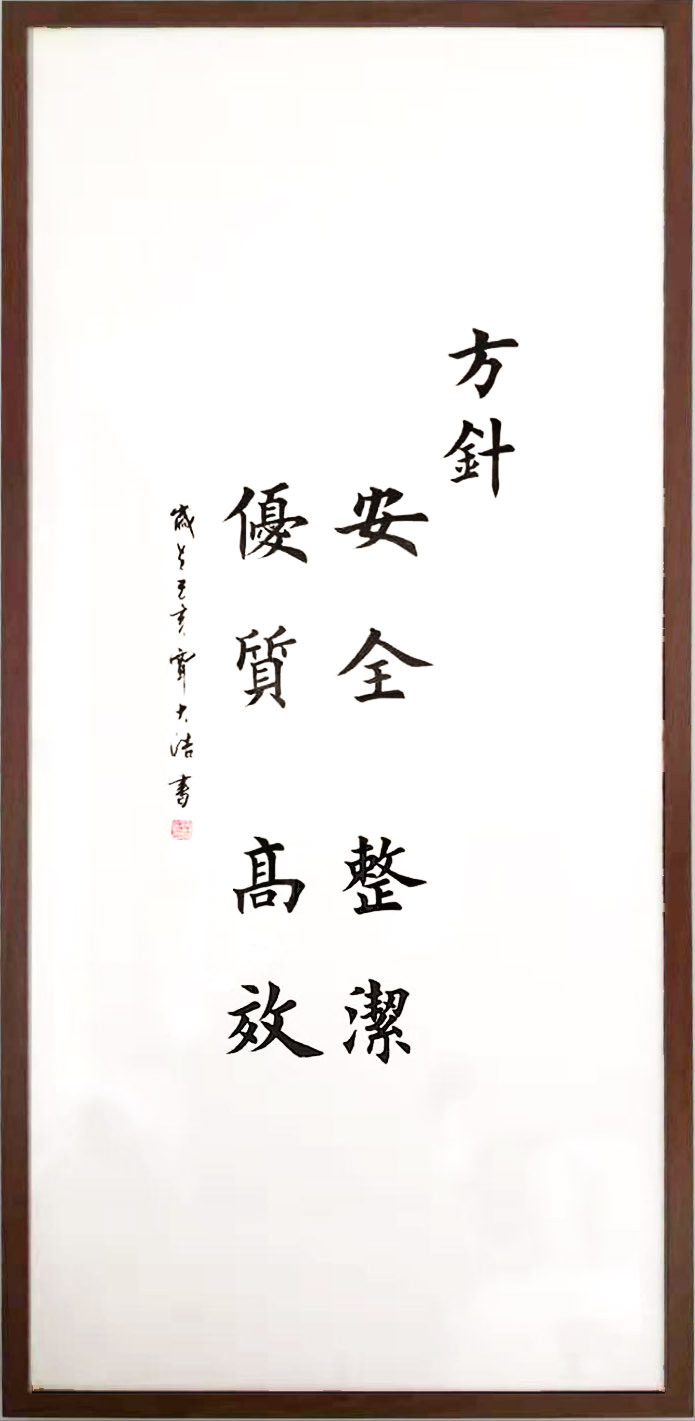 方針
安全 整潔
優質 高效
歲在己亥 寗大浩書